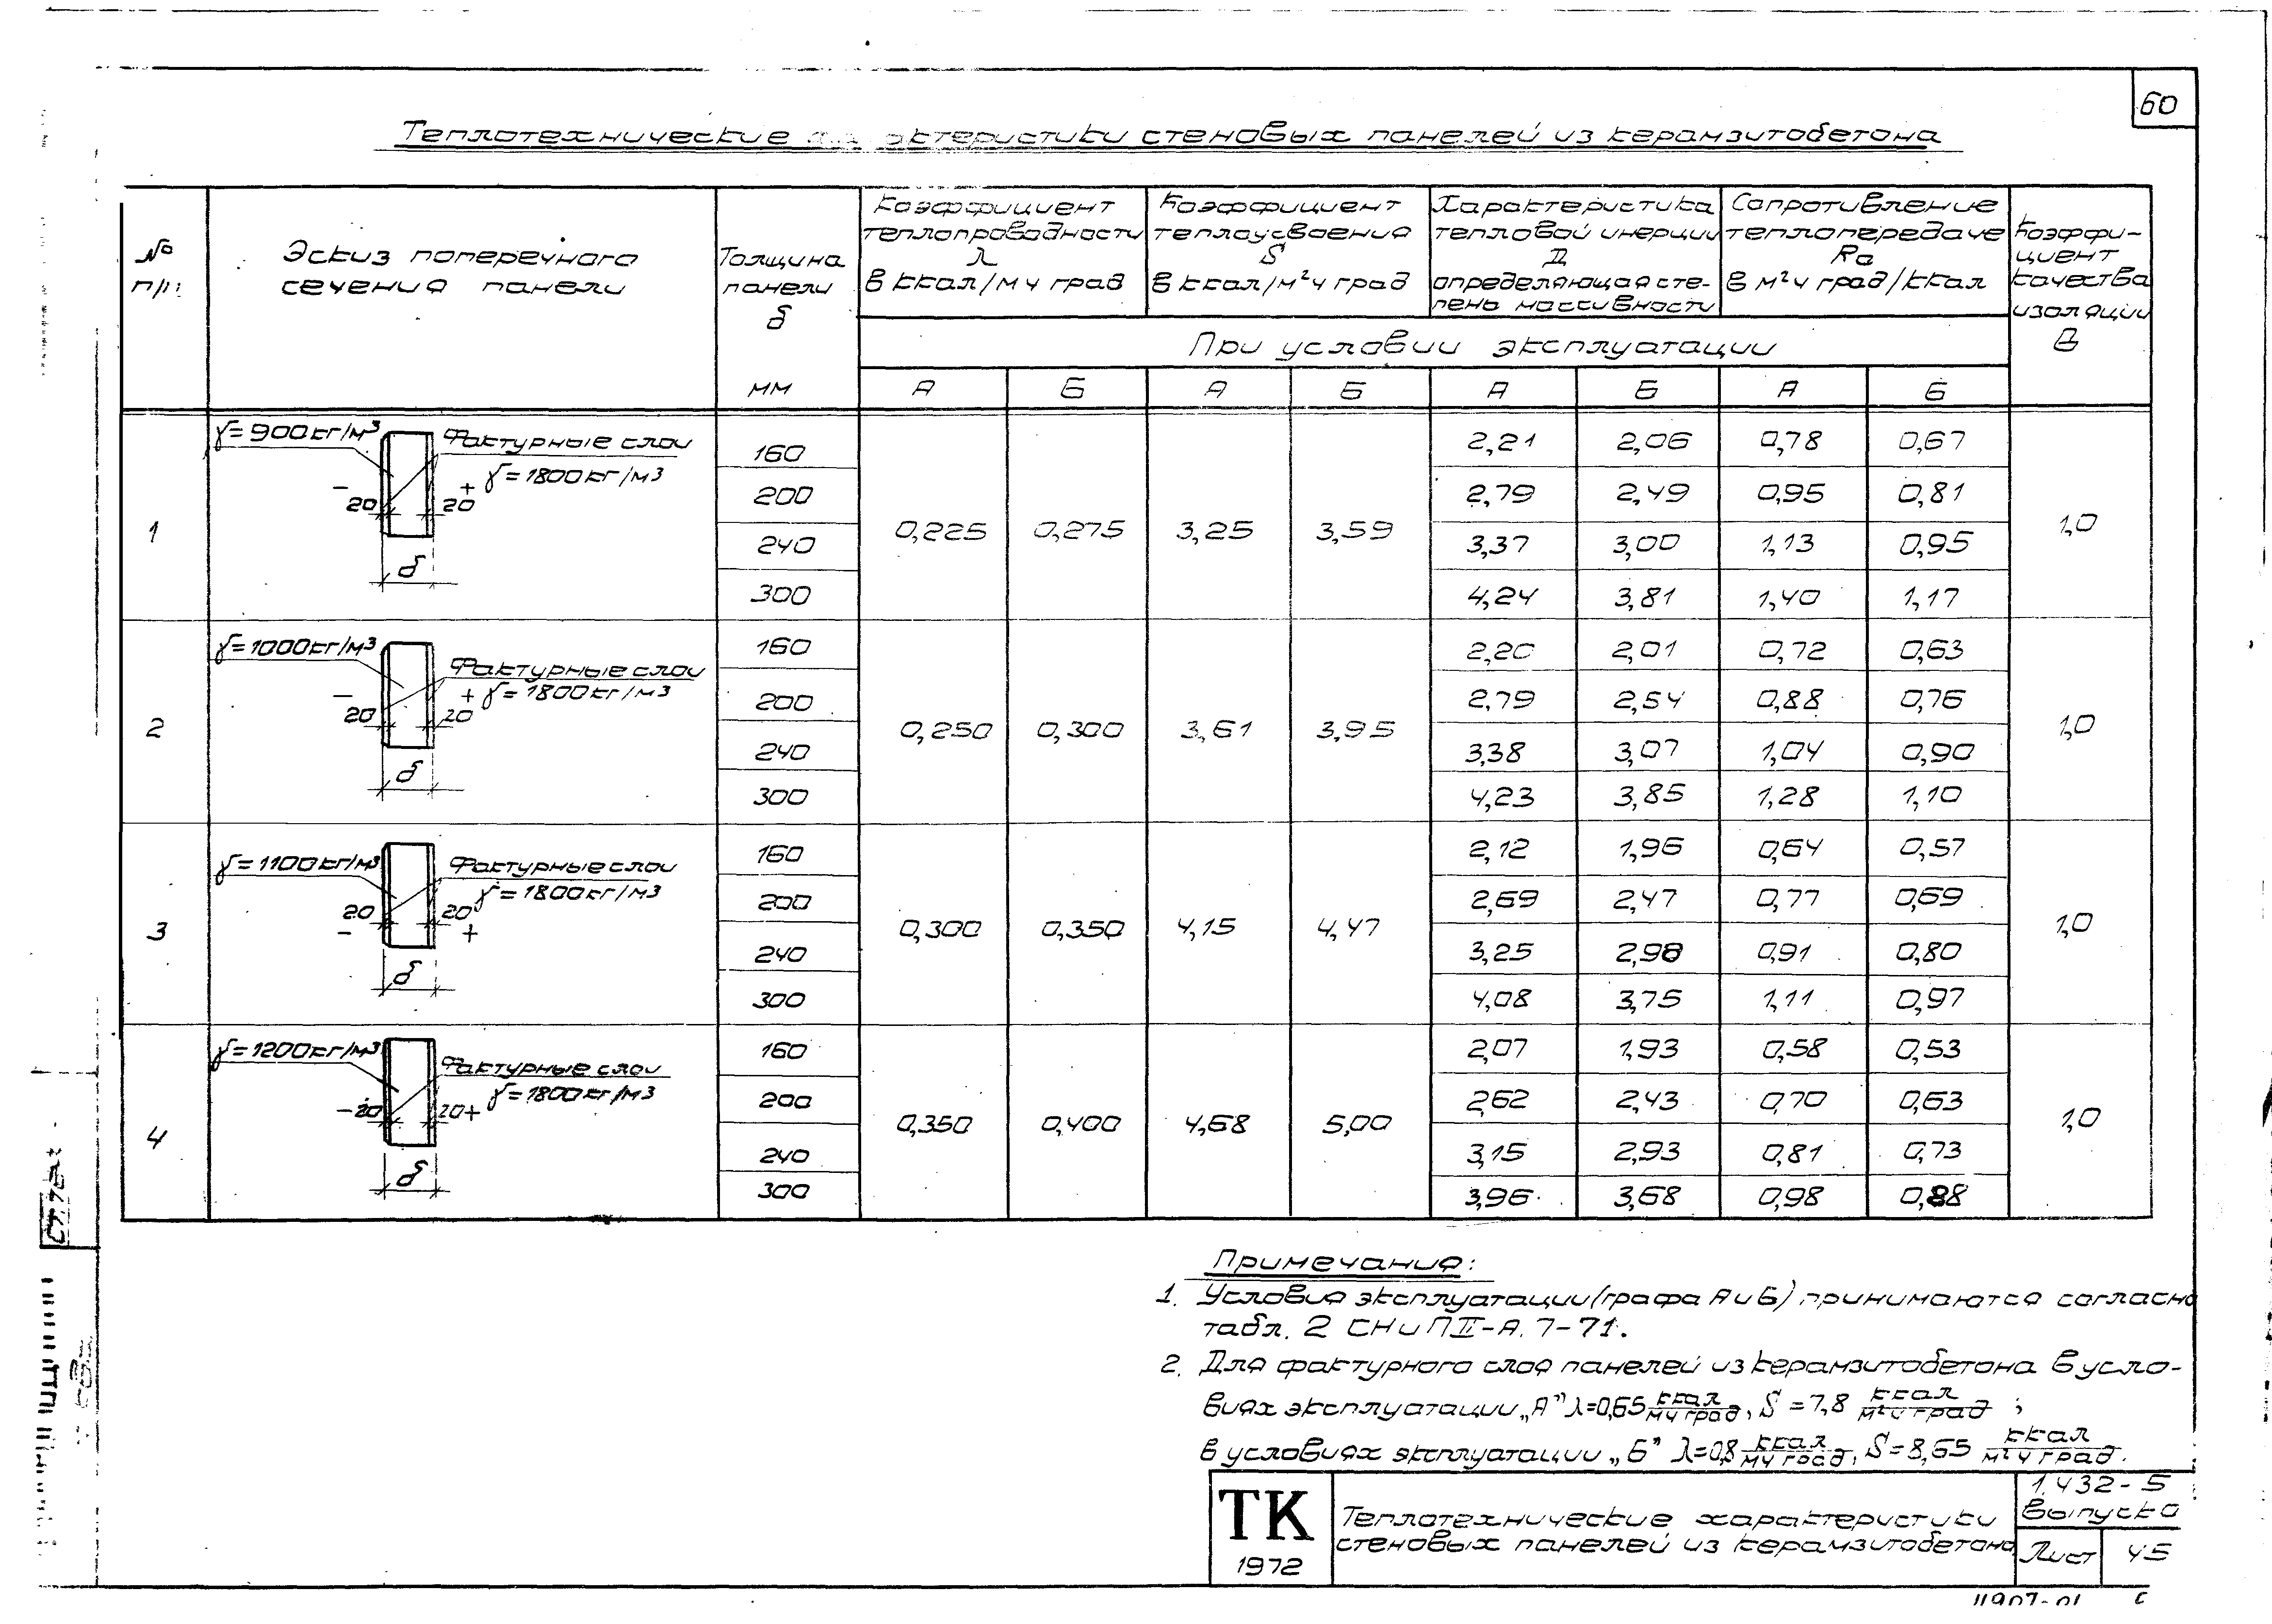 60
Теплотехнические характеристики стеновых панелей из керамзитобетона
№ п/п
Эскиз поперечного
сечения панели
Толщина
панели
δ
мм
Коэффициент
теплопроводности
λ
в ккал/м ч град
Коэффициент
теплоусвоения
S
в ккал/м² ч град
Характеристика
тепловой инерции
Д
определяющая сте-
пень массивности
Сопротивление
теплопередаче
Ro
в м² ч град/ккал
Коэффи-
циент
качества
изоляции
В
При условии эксплуатации
А Б А Б А Б А Б
1
γ=900кг/м³
Фактурные слои
γ=1800кг/м³
− 20 + 20
δ
0,225 0,275 3,25 3,59
160 2,21 2,06 0,78 0,67
200 2,79 2,49 0,95 0,81
240 3,37 3,00 1,13 0,95
300 4,24 3,81 1,40 1,17
1,0
2
γ=1000кг/м³
Фактурные слои
γ=1800кг/м³
− 20 + 20
δ
0,250 0,300 3,61 3,95
160 2,20 2,01 0,72 0,63
200 2,79 2,54 0,88 0,76
240 3,38 3,07 1,04 0,90
300 4,23 3,85 1,28 1,10
1,0
3
γ=1100кг/м³
Фактурные слои
γ=1800кг/м³
20 − 20 +
δ
0,300 0,350 4,15 4,47
160 2,12 1,96 0,64 0,57
200 2,69 2,47 0,77 0,69
240 3,25 2,98 0,91 0,80
300 4,08 3,75 1,11 0,97
1,0
4
γ=1200кг/м³
Фактурные слои
γ=1800кг/м³
−20 20+
δ
0,350 0,400 4,68 5,00
160 2,07 1,93 0,58 0,53
200 2,62 2,43 0,70 0,63
240 3,15 2,93 0,81 0,73
300 3,96 3,68 0,98 0,88
1,0
Примечания:
1. Условия эксплуатации (графа А и Б) принимаются согласно
табл. 2 СНиП II-А. 7-71.
2. Для фактурного слоя панелей из керамзитобетона в усло-
виях эксплуатации „А" λ=0,65 ккал/м ч град, S=7,8 ккал/м² ч град;
в условиях эксплуатации „Б" λ=0,8 ккал/м ч град, S=8,65 ккал/м² ч град.
ТК
1972
Теплотехнические характеристики
стеновых панелей из керамзитобетона
1.432-5
Выпуск 0
Лист 45
11907-01